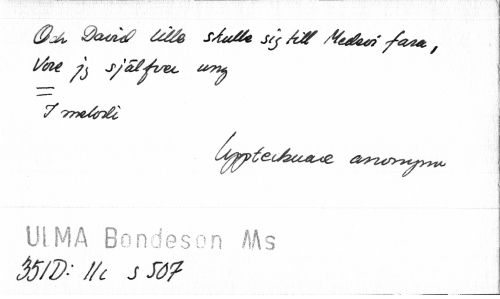 Och David lille skulle sig till Medevi fara,
Vore jg självfver ung
=
I melodi
Upptecknare anonym
ULMA Bondeson Ms
351D: 11c s 507